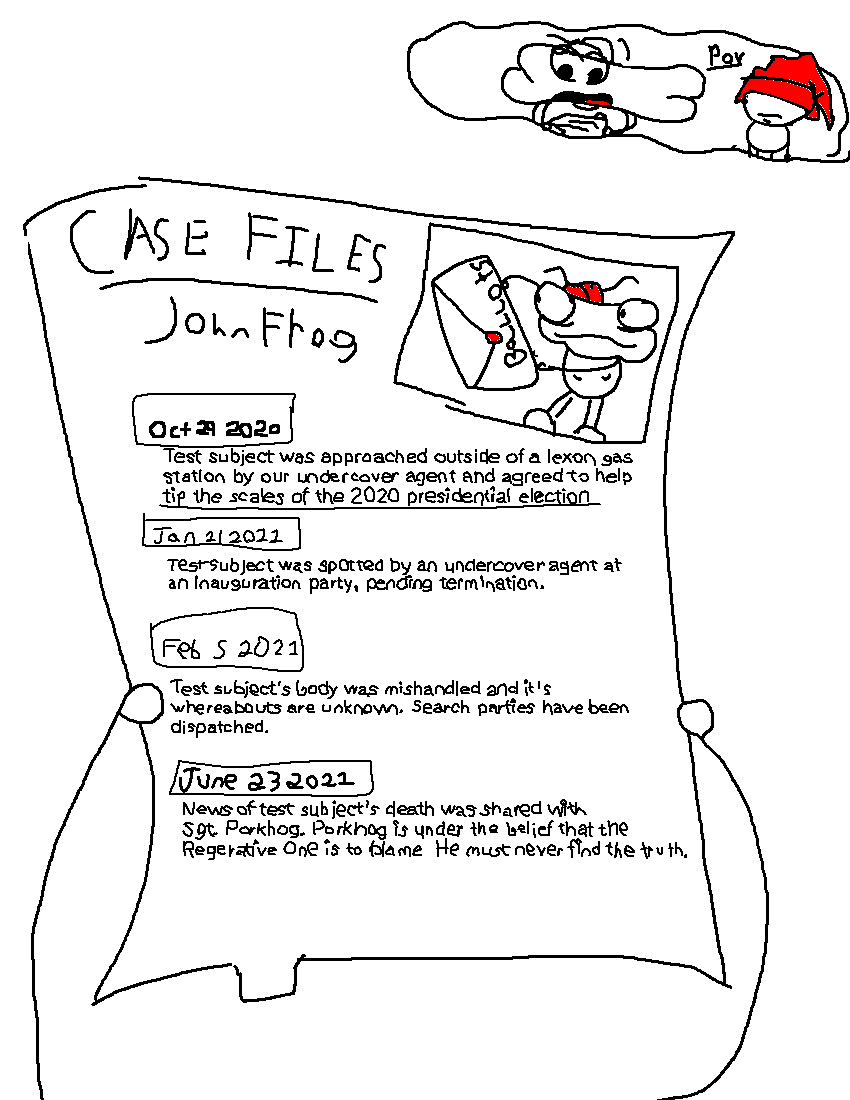 Pov
CASE FILES
John Frog
Ballots
Oct 29 2020
Test subject was approached outside of a lexon gas
station by our undercover agent and agreed to help
tip the scales of the 2020 presidential election
Jan 21 2021
Test subject was spotted by an undercover agent at
an inauguration party, pending termination.
Feb 5 2021
Test subject's body was mishandled and it's
whereabouts are unknown. Search parties have been
dispatched.
June 23 2021
News of test subject's death was shared with
Sgt. Porkhog. Porkhog is under the belief that the
Regerative One is to blame He must never find the truth.